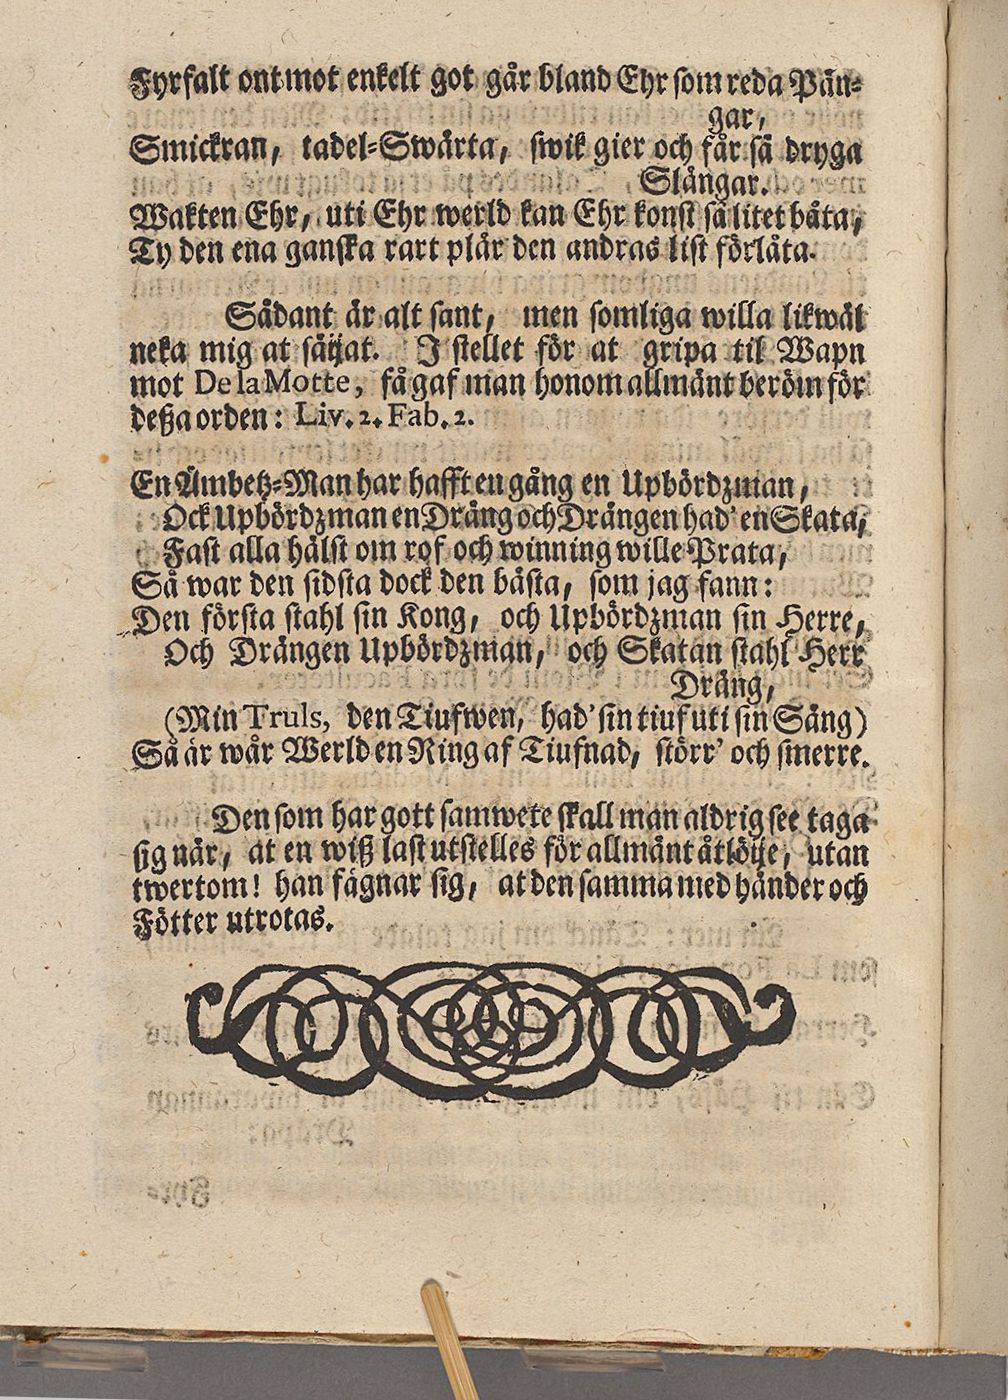 Fyrfalt ont mot enkelt got går bland Ehr som reda Pän-
gar,
Smickran, tadel-Swärta, swik gier och får så dryga
Slängar.
Wakten Ehr, uti Ehr werld kan Ehr konst så litet båta,
Ty den ena ganska rart plår den andras list förlåta.
Sådant är alt sant, men somliga willa likwäl
neka mig at säijat. I stellet för at gripa til Wapn
mot De la Motte, få gaf man honom allmänt beröm för
deßa orden: Liv. 2. Fab. 2.
En Ämbetz-Man har hafft en gång en Upbördzman,
Ock Upbördzman en Dräng och Drängen had' en Skata,
Fast alla hälst om rof och winning wille Prata,
Så war den sidsta dock den bästa, som jag fann:
Den första stahl sin Kong, och Upbördzman sin Herre,
Och Drängen Upbördzman, och Skatan stahl Herr
Dräng,
(Min Truls, den Tiufwen, had' sin tiuf uti sin Säng)
Så är wår Werld en Ring af Tiufnad, störr' och smerre.
Den som har gott samwete skall man aldrig see taga
sig när, at en wiß last utstelles för allmänt åtlöije, utan
twertom! han fägnar sig, at den samma med händer och
Fötter utrotas.